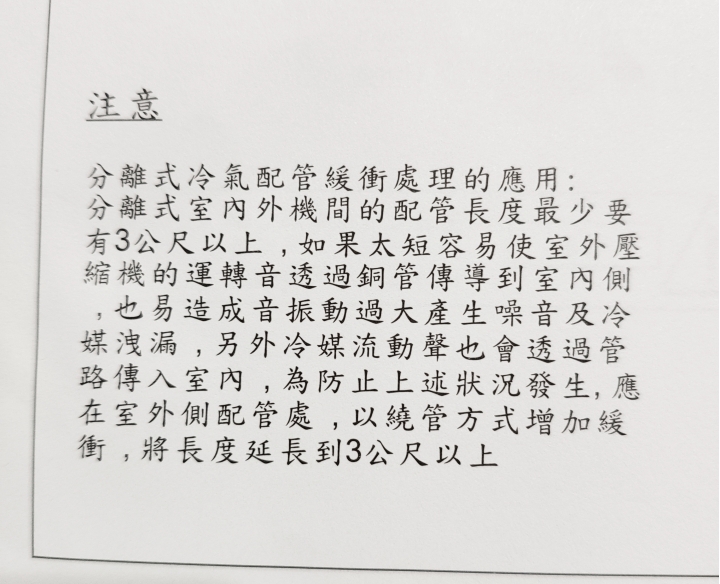 注意
分離式冷氣配管緩衝處理的應用:
分離式室內外機間的配管長度最少要
有3公尺以上,如果太短容易使室外壓
縮機的運轉音透過銅管傳導到室內側
,也易造成音振動過大產生噪音及冷
媒洩漏,另外冷媒流動聲也會透過管
路傳入室內,為防止上述狀況發生,應
在室外側配管處,以繞管方式增加緩
衝,將長度延長到3公尺以上